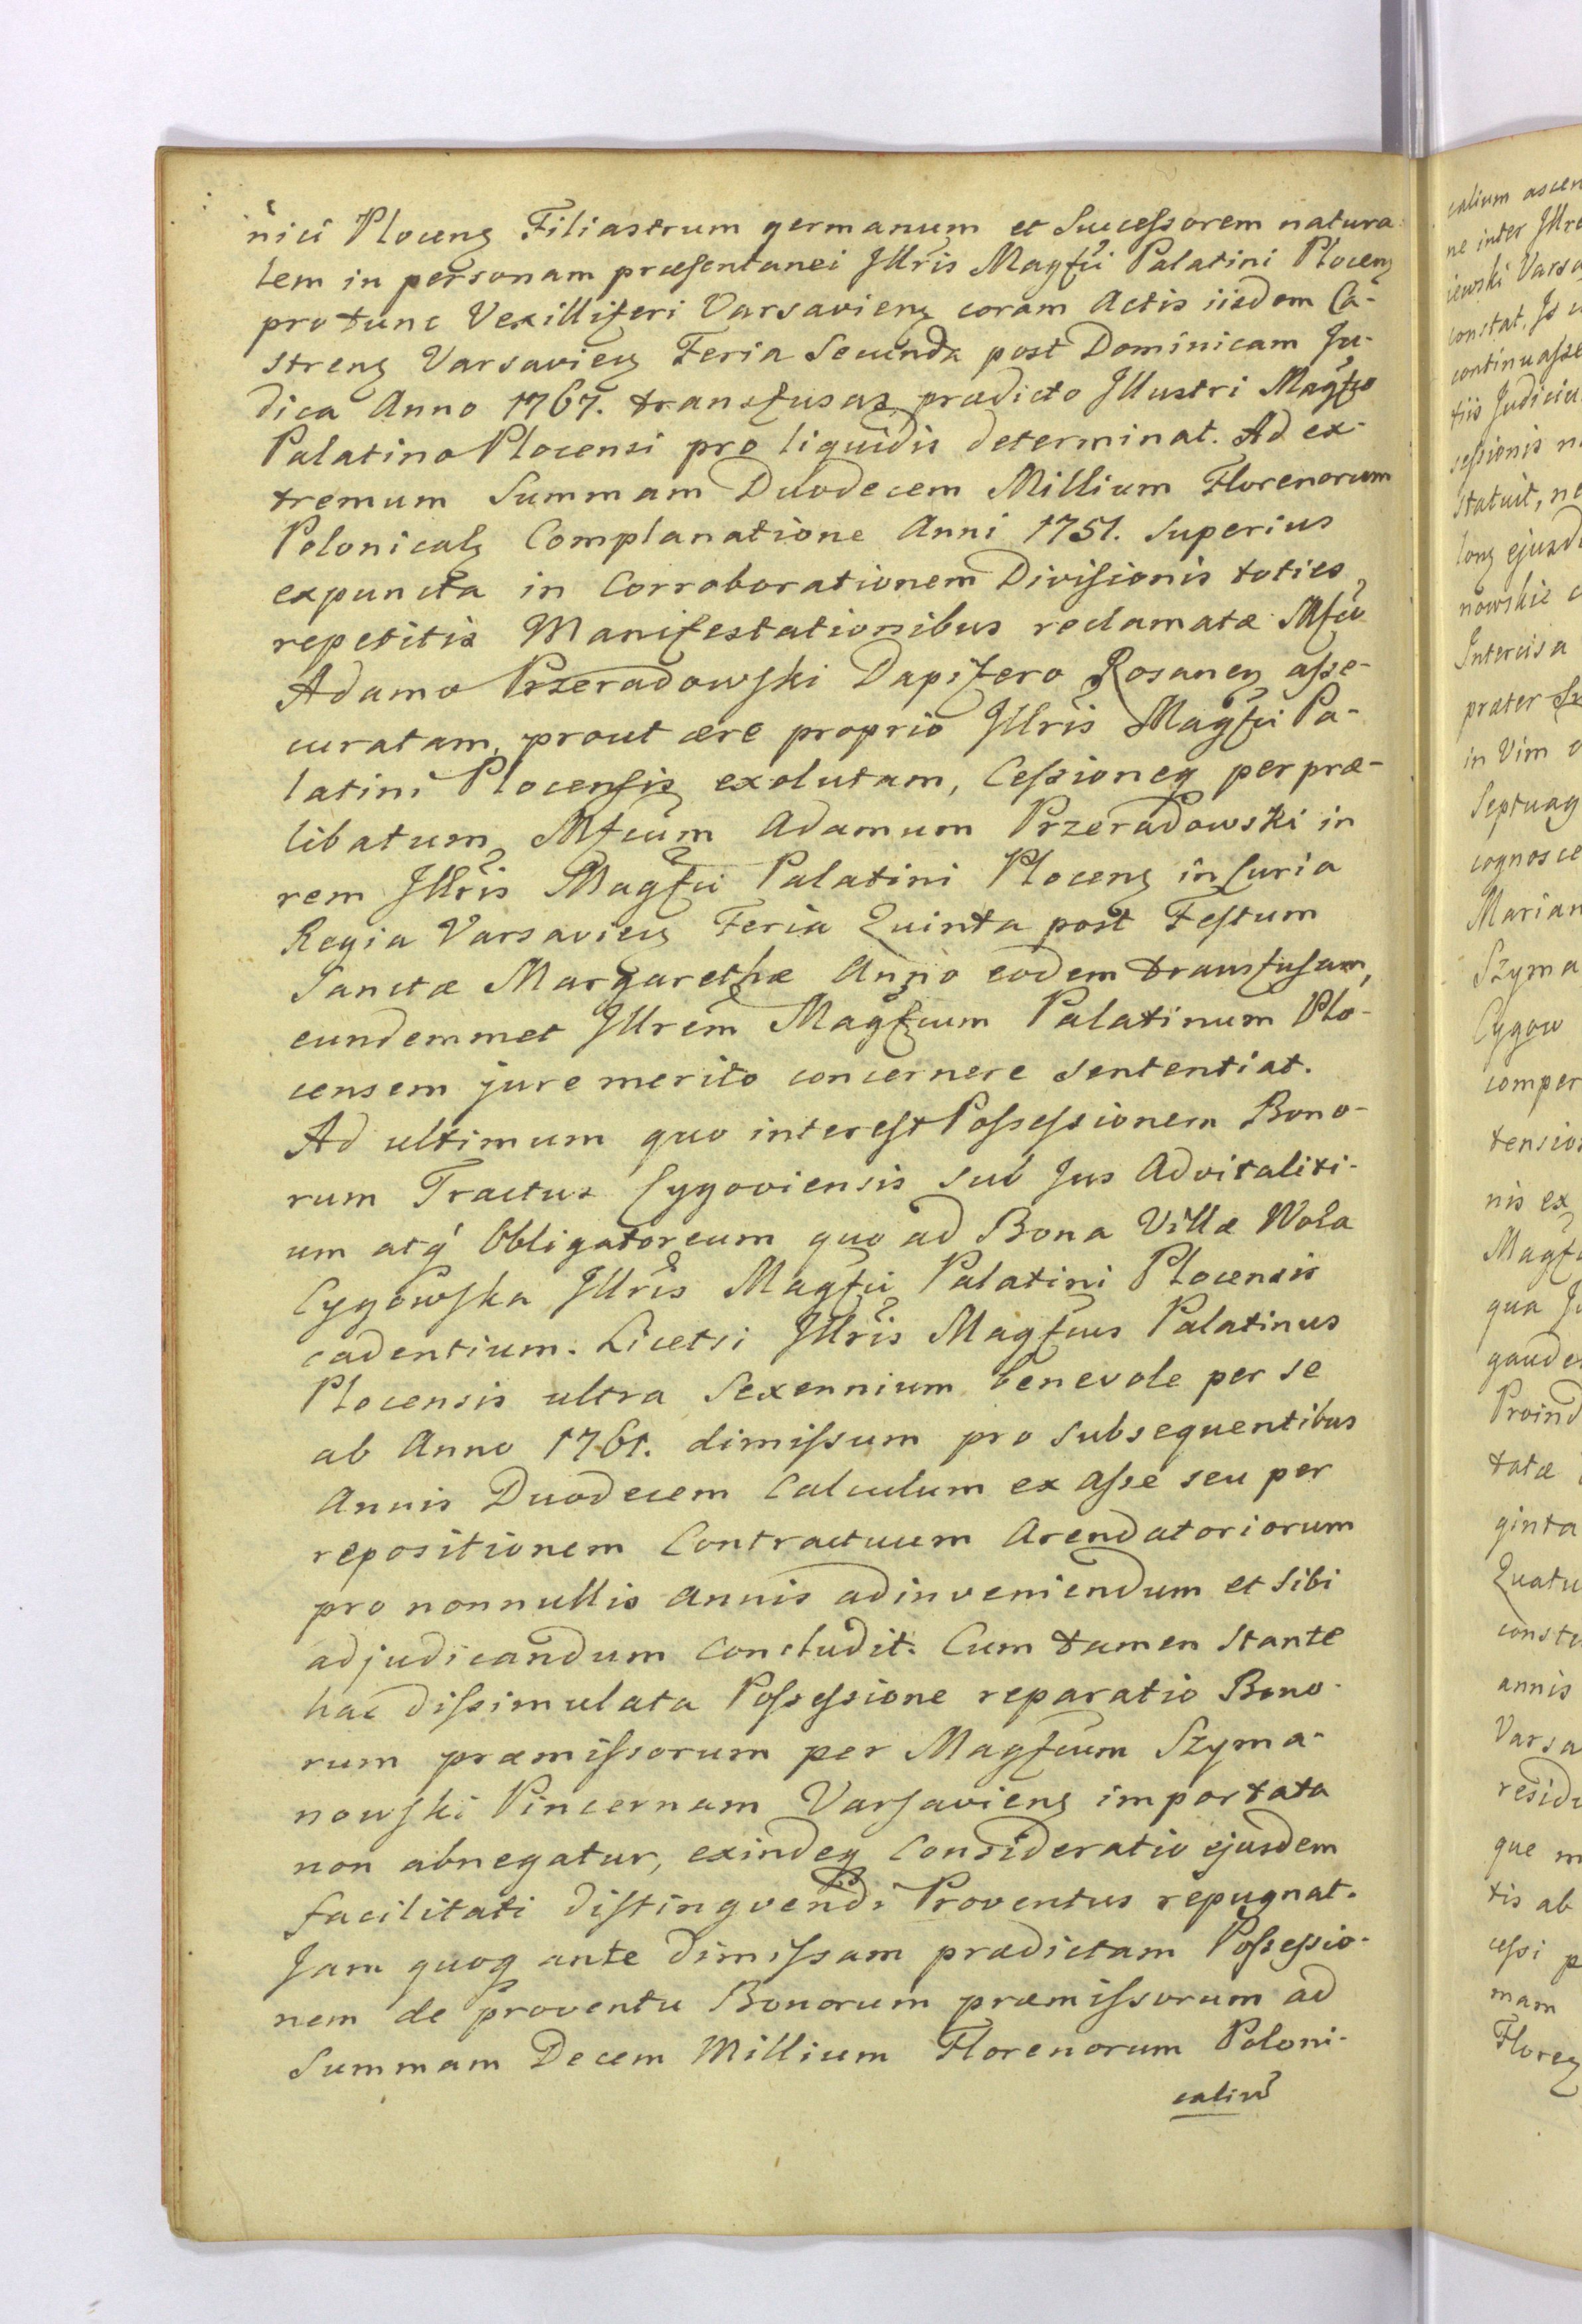 nici Plocenꝫ Filiastrum germanum et Succeſsorem natura-
lem in personam præsentanei Jllris Magfci Palatini Plocenꝫ
pro tunc Vexilliferi Varsavienꝫ coram Actis iisdem Ca-
strenꝫ Varsavienꝫ Feria Secunda post Dominicam Ju-
dica Anno 1767. transfusas prædicto Jllustri Magfco
Palatino Plocensi pro liquidis determinat. Ad ex-
tremum Summam Duodecem Millium Florenorum
Polonicalꝫ Complanatione Anni 1751. Superius
expuncta in Corroborationem Divisionis toties
repetitis Manifestationibus reclamatæ Mfco
Adamo Przeradowſki Dapifero Rosanenꝫ aſse-
curatam, prout ære proprio Jllris Magfci Pa-
latini Plocenſis exolutam, Ceſsionemqꝫ per præ-
libatum Mfcum Adamum Przeradowski in
rem Jllris Magfci Palatini Plocenꝫ in Curia
Regia Varsavienꝫ Feria Quinta post Feſtum
Sanctæ Margarethæ Anno eodem transfuſam,
eundemmet Jllrem Magfcum Palatinum Plo-
censem jure merito concernere sententiat.
Ad ultimum quo intereſt Poſseſsionem Bono-
rum Tractus Cygoviensis sub Jus Advitaliti-
um atqꝫ Obligatoreum quo ad Bona Villæ Wola
Cygowſka Jllris Magfci Palatini Plocensis
cadentium. Licetsi Jllris Magfcus Palatinus
Plocensis ultra Sexennium benevole per se
ab Anno 1761. dimiſsum pro subsequentibus
Annis Duodecem Calculum ex aſse seu per
repositionem Contractuum Arendatoriorum
pro nonnullis annis adinveniendum et Sibi
adjudicandum Concludit. Cum tamen Stante
hac diſsimulata Poſseſsione reparatio Bono-
rum præmiſsorum per Magfcum Szyma-
nowſki Pincernam Varſavienꝫ importata
non abnegatur, exindeqꝫ Consideratio ejusdem
facilitati diſtingvendi Proventus repugnat.
Jam quoqꝫ ante dimiſsam prædictam Poſseſsio-
nem de proventu Bonorum præmiſsorum ad
Summam Decem Millium Florenorum Poloni-
calium
calium ascen
ne inter Jllre
constat.
continuaſse
tiis Judiciu
seſsionis n
statuit, ne
long ejusd
nowskie
Intercisa
præter
in Vim
Septuag
cognosce
Marian
Szyma
Cygow
comper
tensio
nis ex
Magf
qua Ju
gaude
Proind
tatæ
ginta
Quatu
consta
annis
Varsa
resid
que m
tis ab
ceſsi p
mam
Florenꝫ